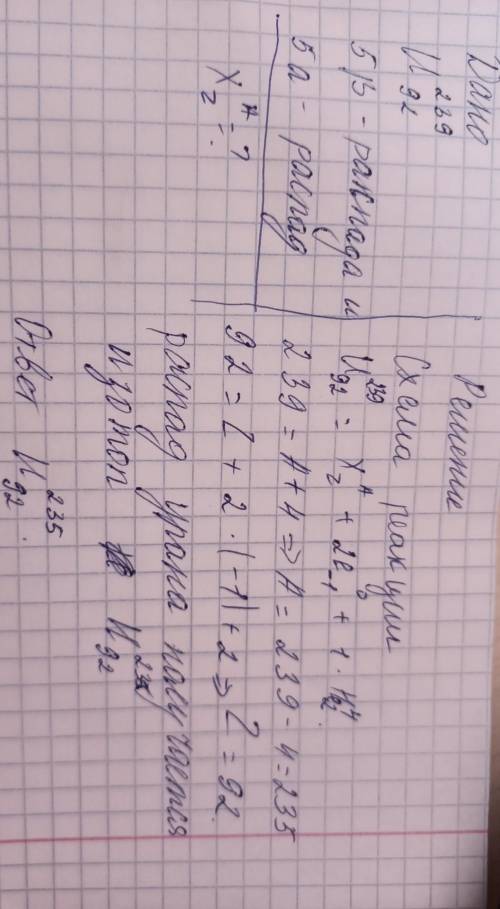 Дано
U 239 92
5 β - распада и
5 α - распад
X A Z - ?
Решение
Схема реакции
U 239 92 = X A Z + 2e 0 -1 + 1 · H 4 2
239 = A + 4 => A = 239 - 4 = 235
92 = Z + 2 · (-1) + 2 => Z = 92.
распад урана получается
изотоп U 235 92
Ответ U 235 92.